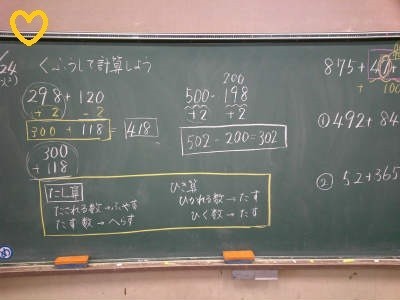 くふうして計算しよう
298+120
+2 -2
300+118=418
300
+118
200
500-198
+2 +2
502-200=302
たし算
たされる数→ふやす
たす数→へらす
ひき算
ひかれる数→たす
ひく数→たす
875+40+
100
①492+84
② 52+365